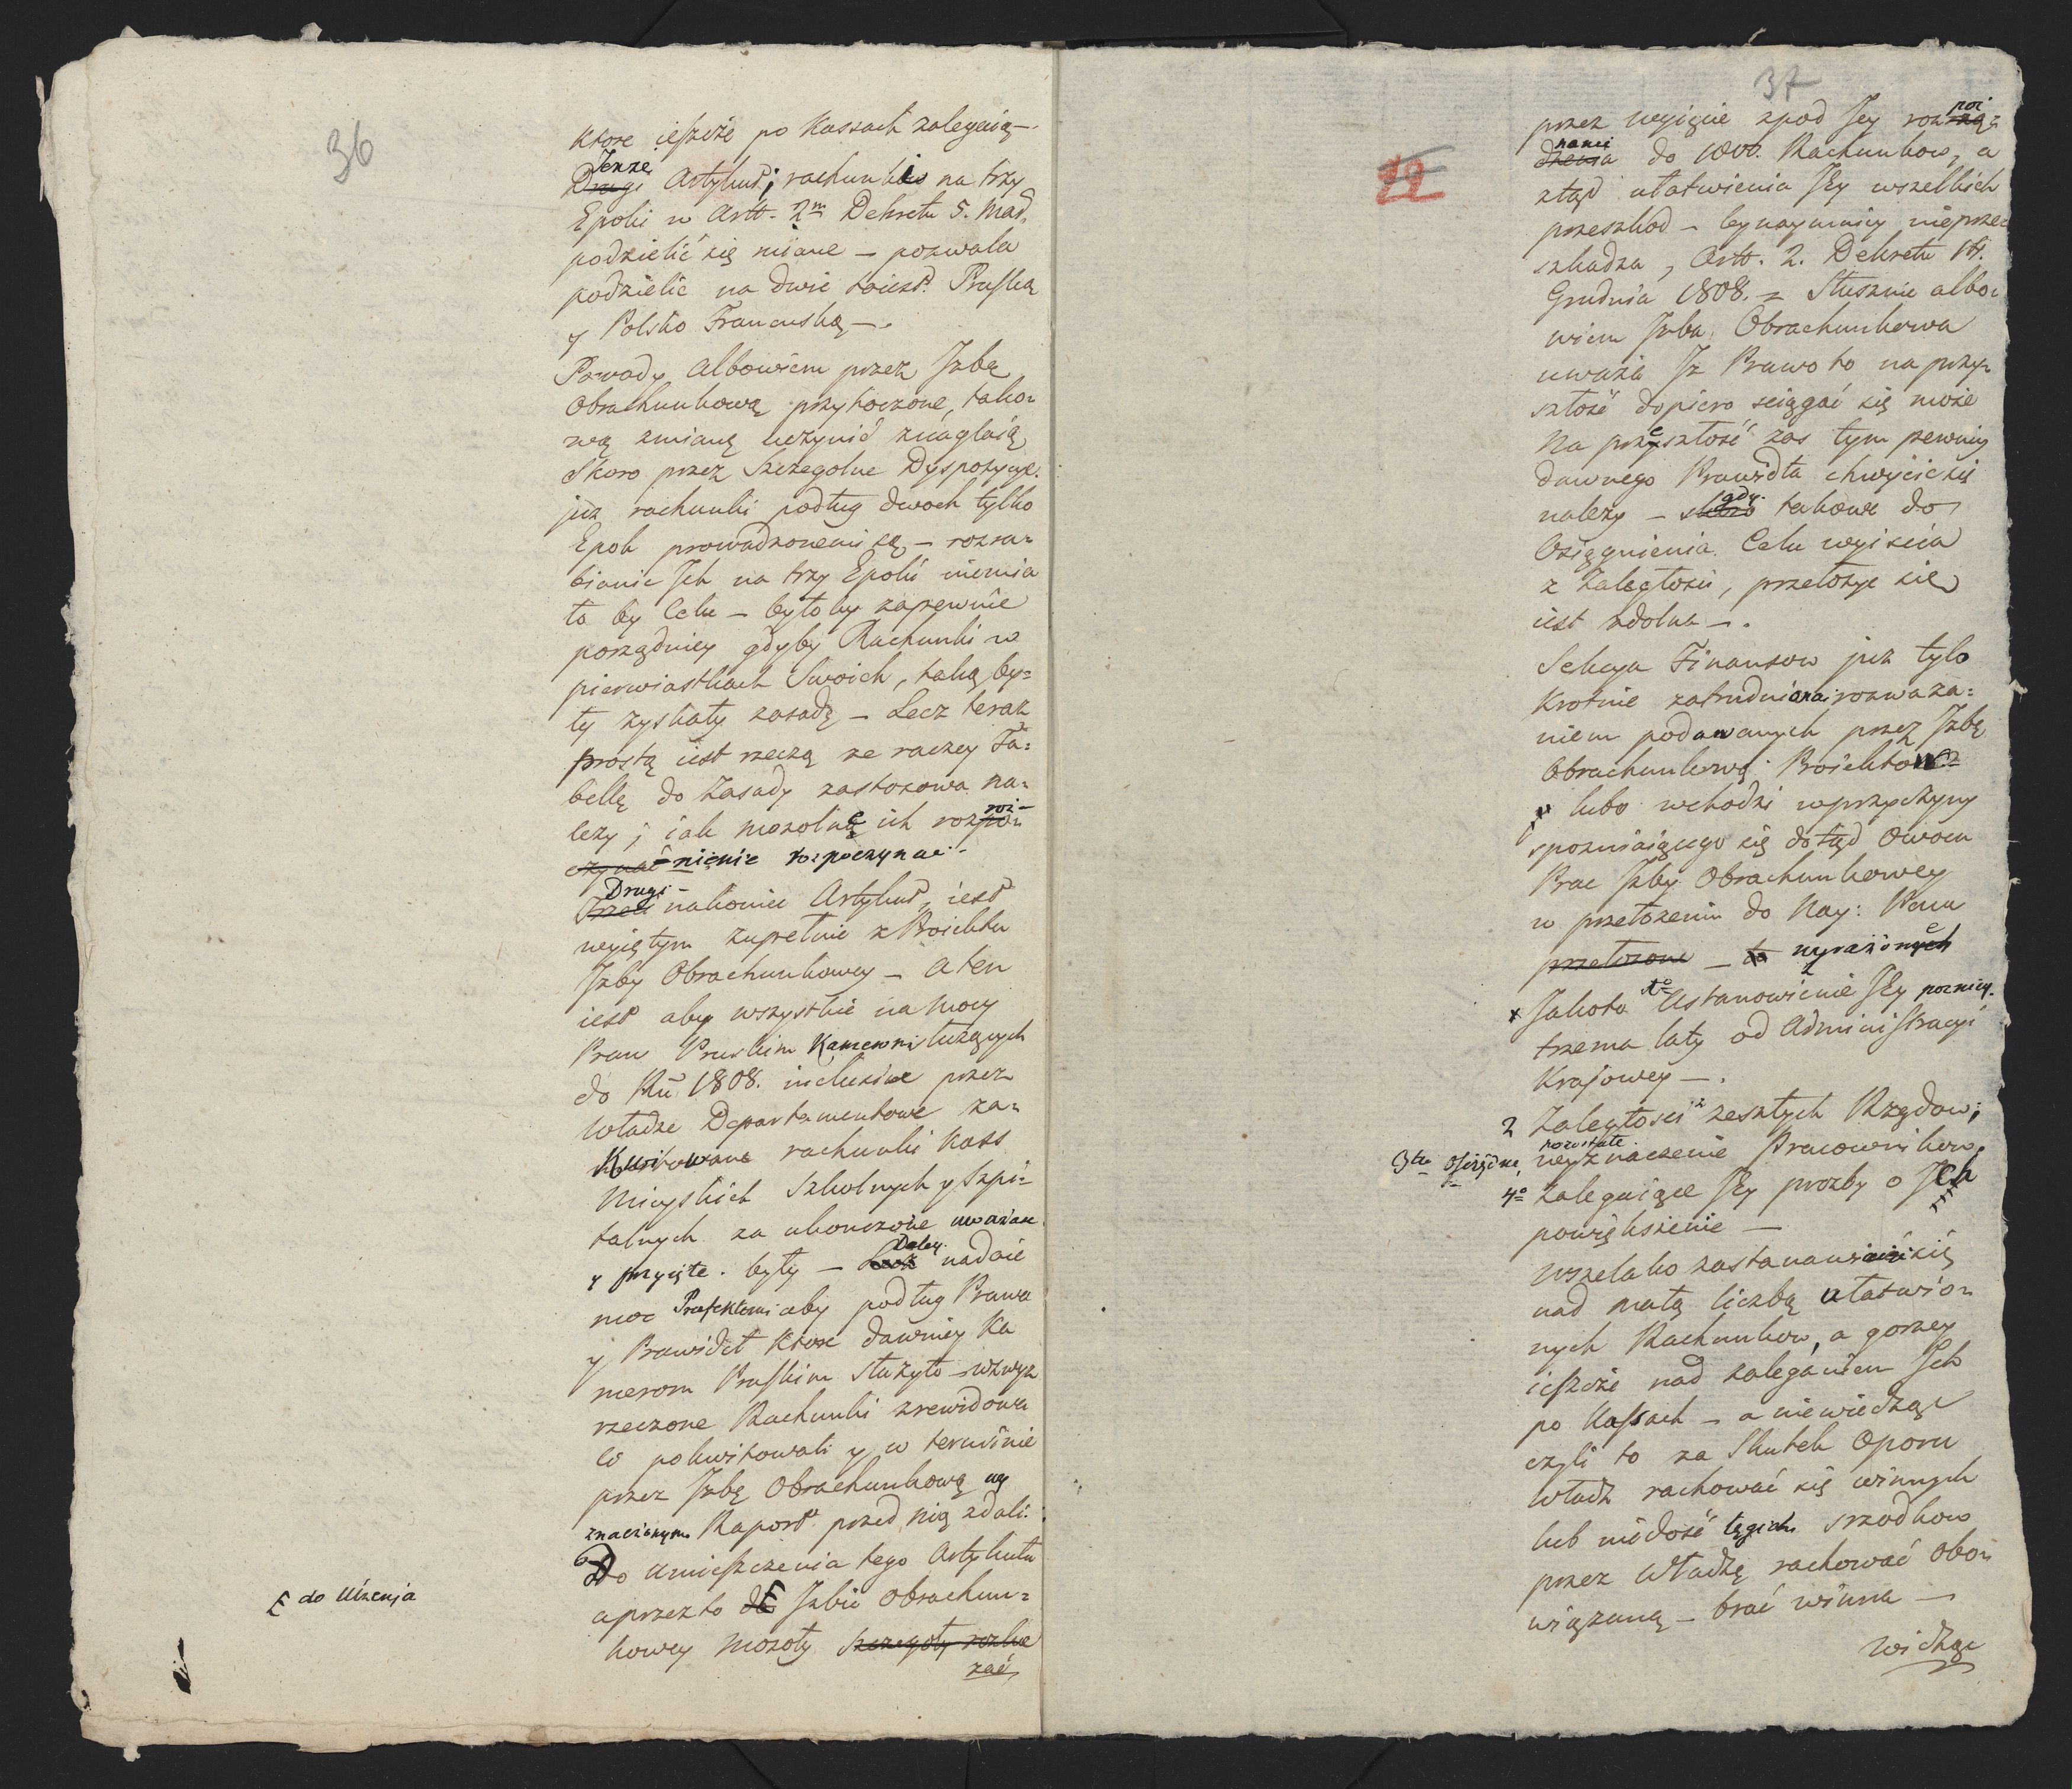 36
ktore ieszcze po Kassach zalegaią —
Tenże
Drugi Artykuł; rachunki na trzy
Epoki w Artt. 2m Dekretu 5. Mad,
podzielić się miane — pozwala
podzielić na dwie toiest. Pruską
y Polsko Francuską —.
Powody albowiem przez Izbę
Obrachunkową przytoczone, tako-
wą zmianę uczynić znaglaią
Skoro przez Szczegolne Dyspozycye.
już rachunki podług dwoch tylko
Epok prowadzonemi są — rozra-
bianie Ich na trzy Epoki niemia
ło by Celu — byłoby zapewnie
porządniey gdyby Rachunki w
pierwiastkach Swoich, taką by=
ły zyskały zasadę — Lecz teraz
prostą iest rzeczą ze raczey Ta=
bellę do Zasady zastosowa na=
lezy; iak mozolne ich rozpo
roz-
czynać -nienie rozpoczynać.
Drugi-
Trzeci nakoniec Artykuł, iest
wyiętym zupełnie z Proiektu
Izby Obrachunkowey — a ten
iest aby wszystkie na mocy
Praw Pruskim Kamerom służących
do Ru 1808. inclusive przez
Władze Departamentowe za-
Kwitowane rachunki Kass
Mieyskich Szkolnych y Szpi-
talnych za ukonczone uwazane
Daley.
y przyięte. były — Lecz nadaie
moc Prefektom aby podług Prawa
y Prawideł ktore dawniey Ka
merom Pruskim służyło — wzwyz
rzeczone Rachunki zrewidowa
li pokwitowali y w terminie
przez Izbę Obrachunkową wy
znaczonym Raport przed nią zdali.
Do umieszczenia tego Artykułu
aprzezto Izbie Obrachun=
kowey mozoły szczegoły
zać
do Ulzenia
37
12
przez wyięcie zpod Iey roz
poz
nania
dzenia do 1800. Rachunkow, a
ztąd ułatwienia Iey wszelkich
przeszkod — bynaymniey nieprze=
szkadza, Artt. 2. Dekretu 14.
Grudnia 1808. — Słusznie albo=
wiem Izba Obrachunkowa
uważa Iż Prawo to na przy-
szłość dopiero sciągać się może
Na przeszłość zas tym pewniey
dawnego Prawidła chwycić się
gdy.
należy — skoro takowe do
Osiągnienia Celu wyiscia
z Zaległości, przełożyć się
iest zdolne —.
Sekcya Finansow już tylo
krotnie zatrudniona rozwaza=
niem podawanych przez Izbę
Obrachunkową Proiektow
lubo wchodzi w przyczyny
spozniaiącego się dotąd owocu
Prac Izby Obrachunkowey
w przełozeniu do Nay: Pana
przełozone — to wyrażone
Jakoto 1o Ustanowienie Iey pozniey.
trzema laty od Administracyi
Krajowey —.
2 Zaległości zeszłych Rządow;
pozostałe
3tio wyznaczenie Pracownikow,
4o Zalegaiące Iey prozby o Ich
powiększenie —
Wszelako zastanawiaiąc się
nad małą liczbą ułatwio-
nych Rachunkow, a gorzey
ieszcze nad zaleganiem Ich
po Kassach — a niewiedząc
czyli to za Skutek Oporu
Władz rachować się winnych
lub niedość tęgich srzodkow
przez Władzę rachować Obo-
wiązaną — brać winna —
widząc